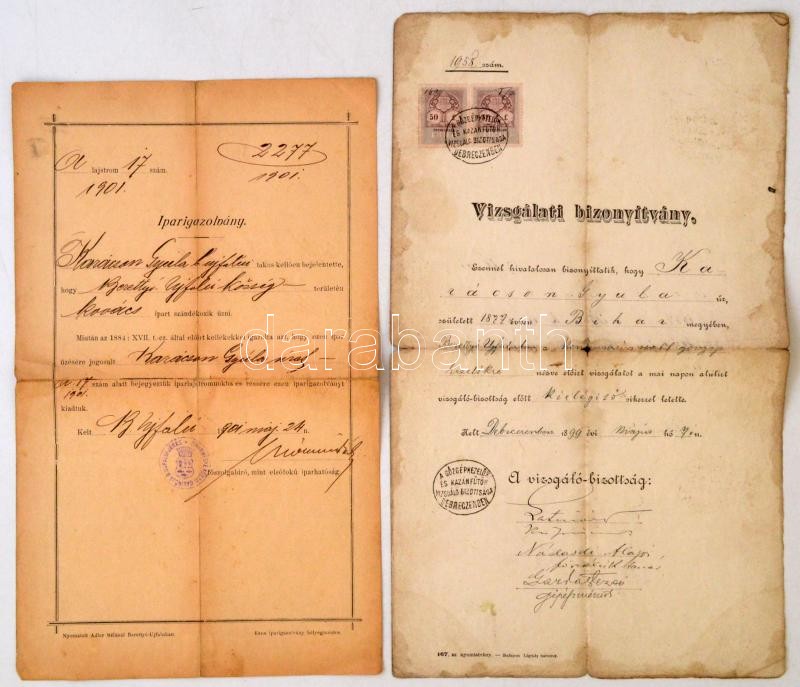 A lajstrom 17 szám.
1901.
2277
1901.
Iparigazolvány.
Karácson Gyula b. ujfalui lakos kellően bejelentette,
hogy Berettyó Ujfalu község területén
kovács ipart szándékozik űzni.
Miután az 1884: XVII. t.-cz. által előirt kellékeket igazolta azt, hogy ezen ipar
űzésére jogosult Karácson Gyula
A 17 szám alatt bejegyeztük iparlajstromunkba és részére ezen iparigazolványt
1901.
kiadtuk.
Kelt B Ujfalu 1901 maj. 24 n.
főszolgabiró, mint elsőfokú iparhatóság.
Nyomatott Adler Berettyó-Ujfaluban.
Ezen iparigazolvány bélyegmentes.
1958 szám.
50
A GŐZGÉPKEZELŐK
ÉS KAZÁNFŰTŐK
VIZSGÁLÓ BIZOTTSÁGA
DEBRECZENBEN
Vizsgálati bizonyitvány.
Ezennel hivatalosan bizonyittatik, hogy Ka-
rácson Gyula úr,
született 1877 évben Bihar megyében,
nézve előirt vizsgálatot a mai napon alulirt
vizsgáló-bizottság előtt kielégitő sikerrel letette.
Kelt Debreczenben 1899 évi Május hó 7 én.
A vizsgáló-bizottság:
A GŐZGÉPKEZELŐK
ÉS KAZÁNFŰTŐK
VIZSGÁLÓ BIZOTTSÁGA
DEBRECZENBEN
Nádasdi Alajos
gépészmérnök
167. sz. nyomtatvány.
darabanth